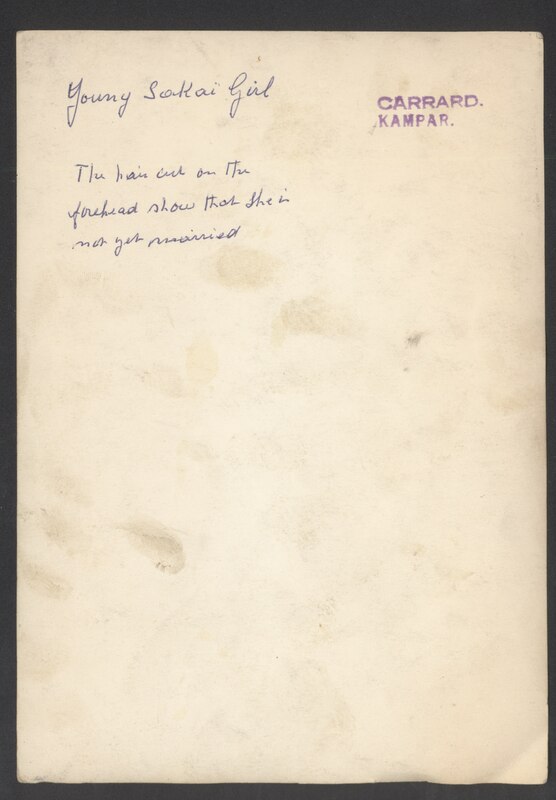 Young Sakaï Girl
CARRARD.
KAMPAR.
The hair cut on the
forehead show that she is
not yet married